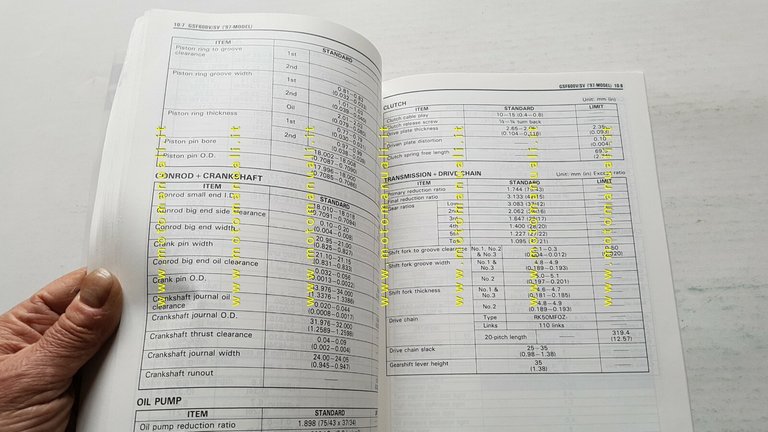 10-7 GSF600V/SV ('97-MODEL)
ITEM STANDARD
Piston ring to groove clearance 1st
2nd
Piston ring groove width 1st
2nd
Oil
Piston ring thickness 1st
2nd
Piston pin bore
Piston pin O.D. 17.996-18.000
(0.7085-0.7086)
CONROD + CRANKSHAFT
ITEM STANDARD
Conrod small end I.D. 18.010-18.018
(0.7091-0.7094)
Conrod big end side clearance 0.10-0.20
(0.004-0.008)
Conrod big end width 20.95-21.00
Crank pin width 21.10-21.15
(0.831-0.833)
Conrod big end oil clearance
Crank pin O.D. 33.976-34.000
(1.3376-1.3386)
Crankshaft journal oil clearance 0.020-0.044
(0.0008-0.0017)
Crankshaft journal O.D. 31.976-32.000
(1.2589-1.2598)
Crankshaft thrust clearance 0.04-0.09
(0.002-0.004)
Crankshaft journal width 24.00-24.05
(0.945-0.947)
Crankshaft runout
OIL PUMP
ITEM STANDARD
Oil pump reduction ratio 1.898 (75/43 x 37/34)
GSF600V/SV ('97-MODEL) 10-8
CLUTCH Unit: mm (in)
ITEM STANDARD LIMIT
Clutch cable play 10-15 (0.4-0.6)
Clutch release screw turn back
Drive plate thickness
Driven plate distortion 0.10
(0.004)
Clutch spring free length
TRANSMISSION + DRIVE CHAIN Unit: mm (in) Except ratio
ITEM STANDARD LIMIT
Primary reduction ratio 1.744 (75/43)
Final reduction ratio 3.133 (47/15)
Gear ratios Low 3.083 (37/12)
2nd 2.062 (33/16)
3rd 1.647 (28/17)
4th 1.400 (28/20)
5th 1.227 (27/22)
Top 1.095 (23/21)
Shift fork to groove clearance No.1, No.2 & No.3 0.1-0.3
(0.004-0.012)
Shift fork groove width No.1 & No.3 4.8-4.9
(0.189-0.193)
No.2 5.0-5.1
(0.197-0.201)
Shift fork thickness No.1 & No.3 4.6-4.7
(0.181-0.185)
No.2 4.8-4.9
(0.189-0.193)
Drive chain Type RK50MFOZ
Links 110 links
20-pitch length 319.4
(12.57)
Drive chain slack 25-35
(0.98-1.38)
Gearshift lever height 35
(1.38)
www.motomanuali.it
www.motomanuali.it
www.motomanuali.it
www.motomanuali.it
www.motomanuali.it
www.motomanuali.it
www.motomanuali.it